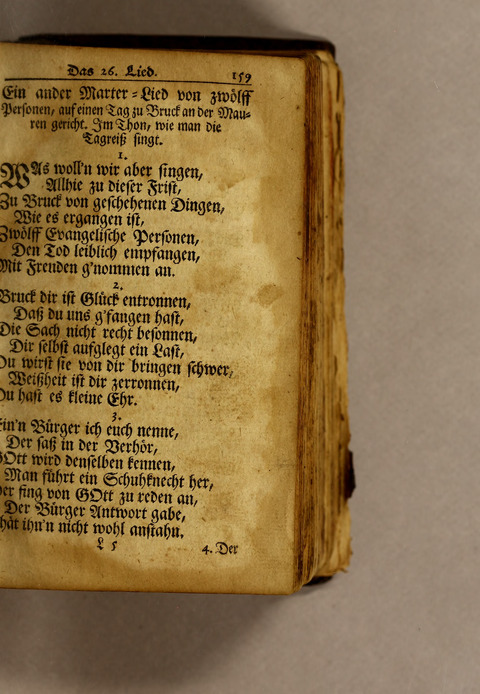 Das 26. Lied. 159
Ein ander Marter-Lied von zwölff
Personen, auf einen Tag zu Bruck an der Mau-
ren gericht. Im Thon, wie man die
Tagreiß singt.
1.
WAs woll'n wir aber singen,
Allhie zu dieser Frist,
Zu Bruck von geschehenen Dingen,
Wie es ergangen ist,
Zwölff Evangelische Personen,
Den Tod leiblich empfangen,
Mit Freuden g'nommen an.
2.
Bruck dir ist Glück entronnen,
Daß du uns g'fangen hast,
Die Sach nicht recht besonnen,
Dir selbst aufglegt ein Last,
Du wirst sie von dir bringen schwer,
Weißheit ist dir zerronnen,
Du hast es kleine Ehr.
3.
Ein'n Bürger ich euch nenne,
Der saß in der Verhör,
GOtt wird denselben kennen,
Man führt ein Schuhknecht her,
Der fing von GOtt zu reden an,
Der Bürger Antwort gabe,
thät ihn'n nicht wohl anstahn.
L 5 4. Der